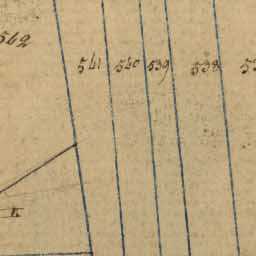 562
541 540 539 538
K